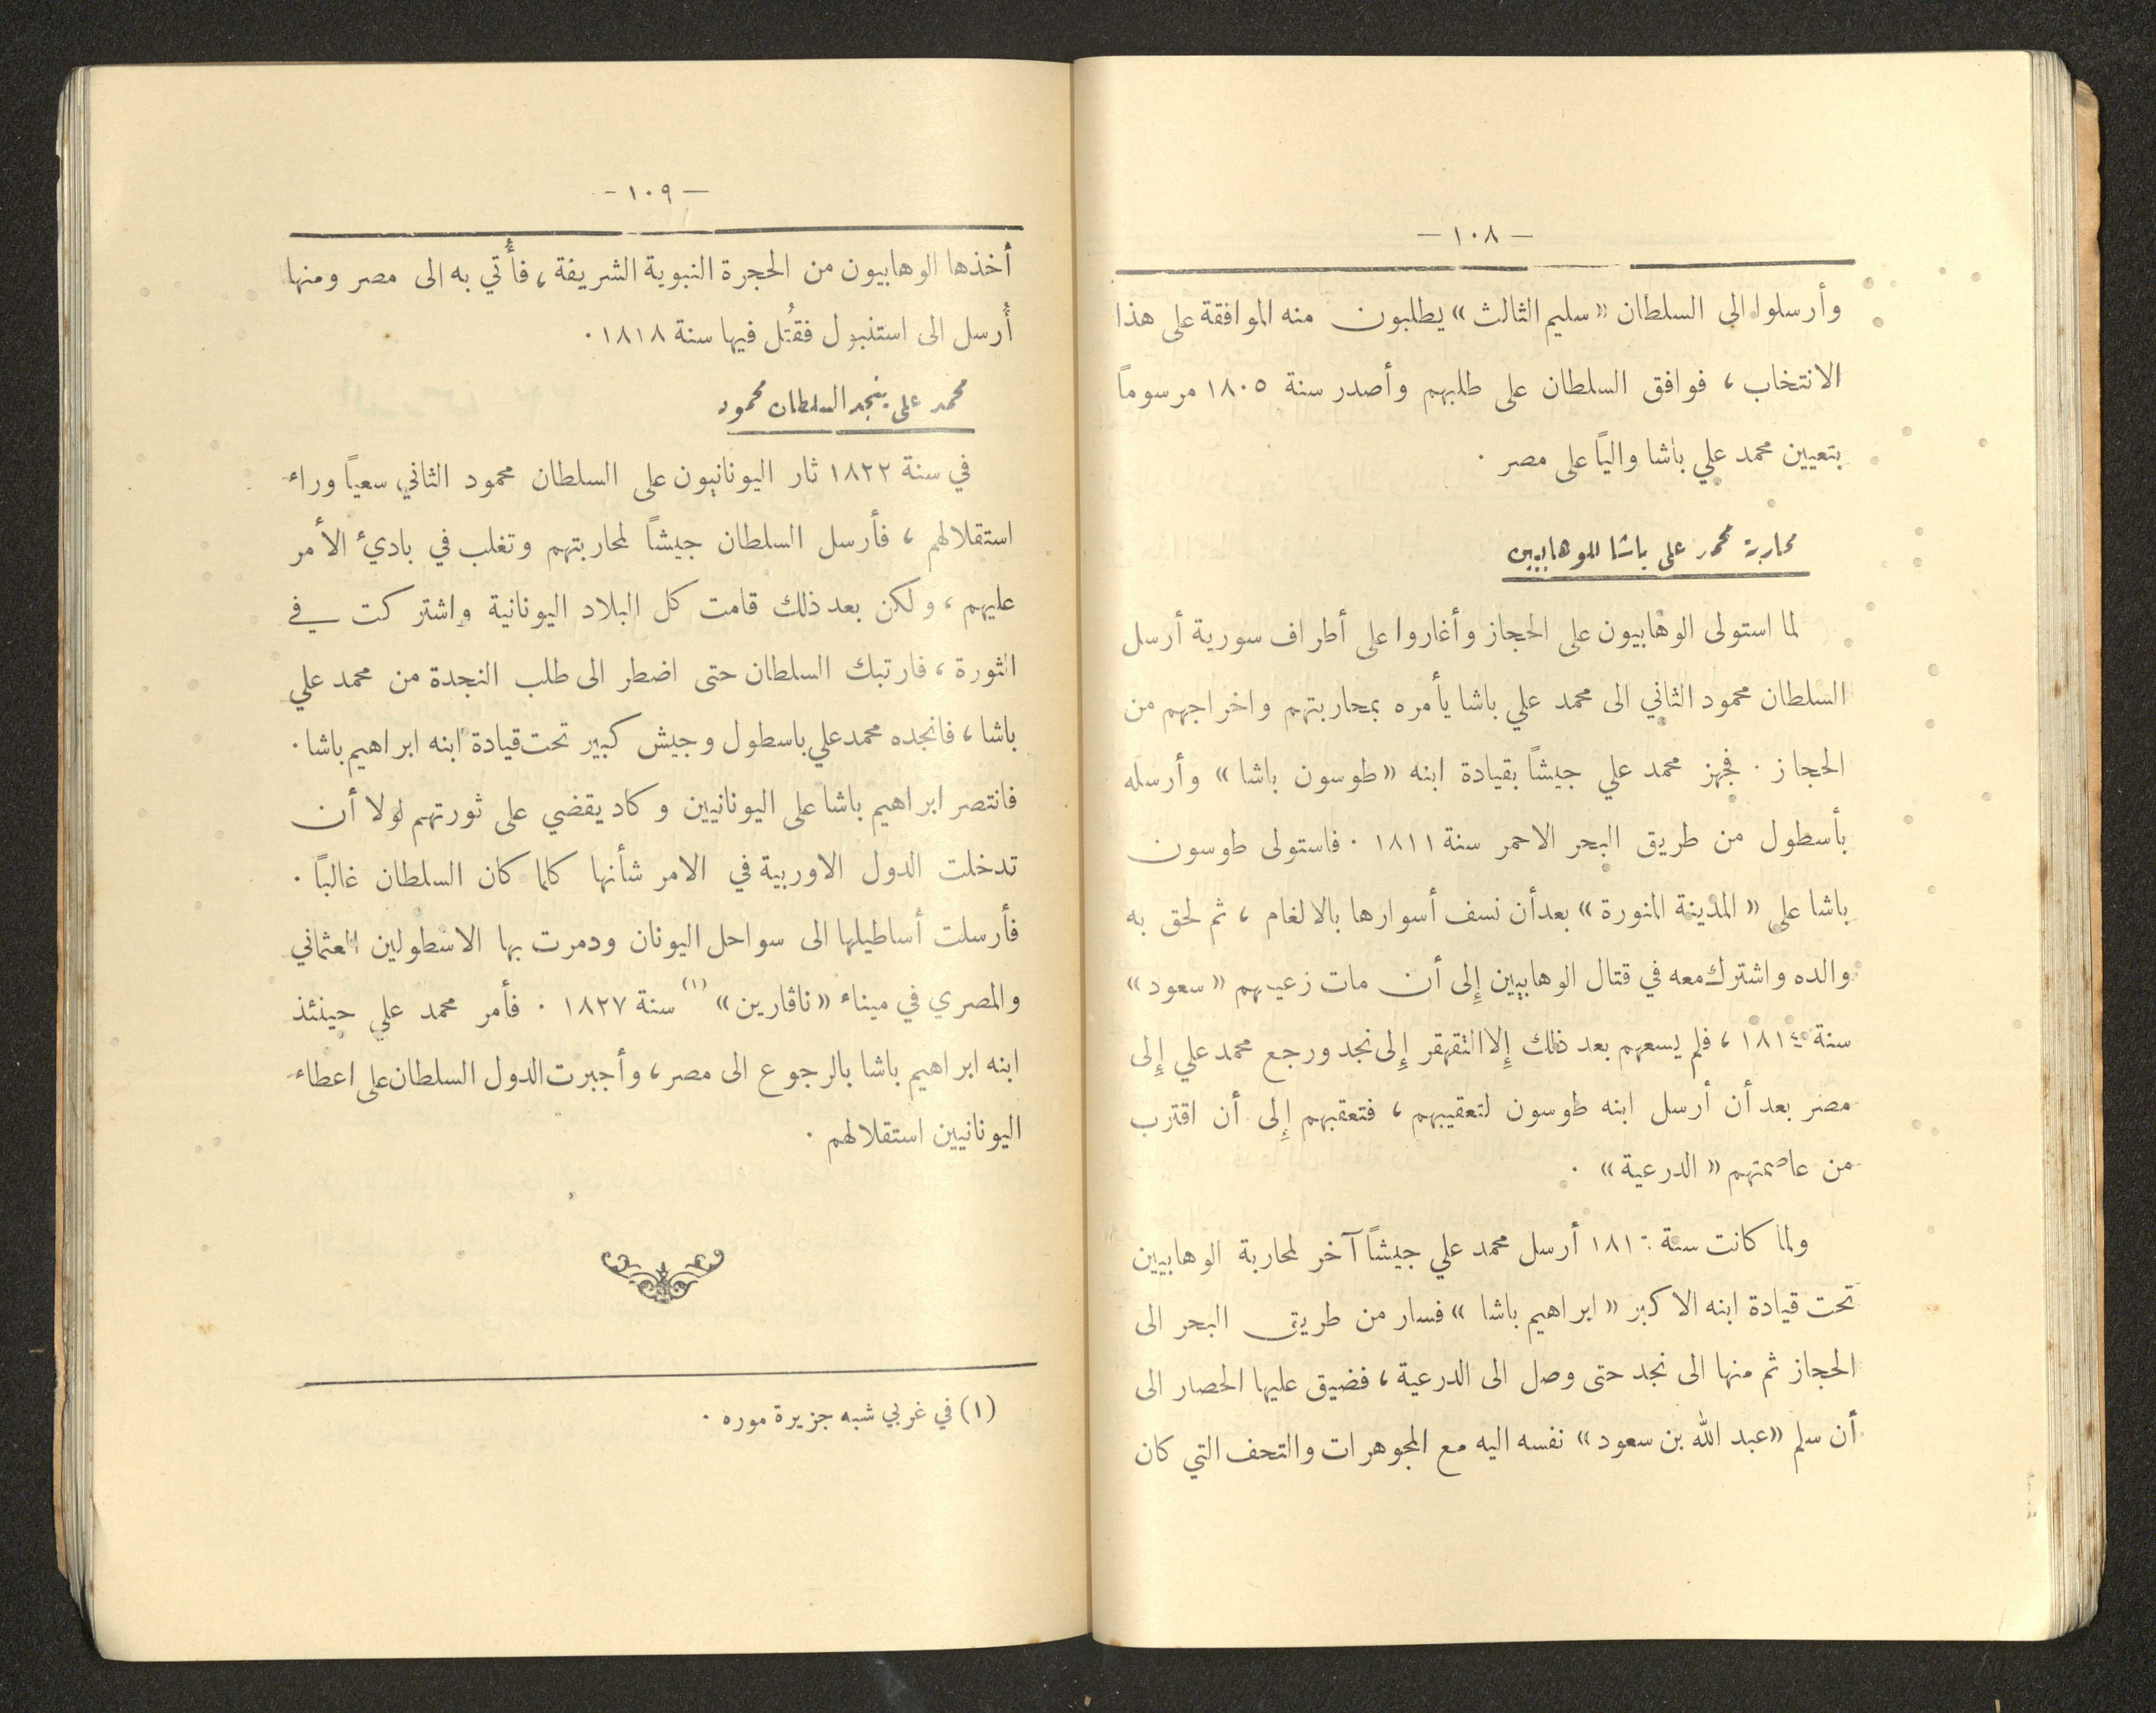 — ١٠٨ —
وأرسلوا الى السلطان «سليم الثالث» يطلبون منه الموافقة على هذا
الانتخاب ، فوافق السلطان على طلبهم وأصدر سنة ١٨٠٥ مرسوماً
بتعيين محمد علي باشا والياً على مصر .
محاربة محمد علي باشا للوهابيين
لما استولى الوهابيون على الحجاز وأغاروا على أطراف سورية أرسل
السلطان محمود الثاني الى محمد علي باشا يأمره بمحاربتهم واخراجهم من
الحجاز . فجهز محمد علي جيشاً بقيادة ابنه «طوسون باشا» وأرسله
بأسطول من طريق البحر الاحمر سنة ١٨١١ . فاستولى طوسون
باشا على «المدينة المنورة» بعد أن نسف أسوارها بالالغام ، ثم لحق به
والده واشترك معه في قتال الوهابيين إلى أن مات زعيمهم «سعود»
سنة ١٨١٤ ، فلم يسعهم بعد ذلك إلا التقهقر إلى نجد ورجع محمد علي إلى
مصر بعد أن أرسل ابنه طوسون لتعقيبهم ، فتعقبهم إلى أن اقترب
من عاصمتهم «الدرعية» .
ولما كانت سنة أرسل محمد علي جيشاً آخر لمحاربة الوهابيين
تحت قيادة ابنه الاكبر «ابراهيم باشا» فسار من طريق البحر الى
الحجاز ثم منها الى نجد حتى وصل الى الدرعية ، فضيق عليها الحصار الى
أن سلم «عبد الله بن سعود» نفسه اليه مع المجوهرات والتحف التي كان
— ١٠٩ —
أخذها الوهابيون من الحجرة النبوية الشريفة ، فأُتي به الى مصر ومنها
أُرسل الى استنبول فقُتل فيها سنة ١٨١٨ .
محمد علي ينجد السلطان محمود
في سنة ١٨٢٢ ثار اليونانيون على السلطان محمود الثاني سعياً وراء
استقلالهم ، فأرسل السلطان جيشاً لمحاربتهم وتغلب في باديء الأمر
عليهم ، ولكن بعد ذلك قامت كل البلاد اليونانية واشتركت في
الثورة ، فارتبك السلطان حتى اضطر الى طلب النجدة من محمد علي
باشا ، فانجده محمد علي باسطول وجيش كبير تحت قيادة ابنه ابراهيم باشا .
فانتصر ابراهيم باشا على اليونانيين وكاد يقضي على ثورتهم لولا أن
تدخلت الدول الاوربية في الامر شأنها كلما كان السلطان غالباً .
فأرسلت أساطيلها الى سواحل اليونان ودمرت بها الاسطولين العثماني
والمصري في ميناء «ناڤارين» (١) سنة ١٨٢٧ . فأمر محمد علي حينئذ
ابنه ابراهيم باشا بالرجوع الى مصر ، وأجبرت الدول السلطان على اعطاء
اليونانيين استقلالهم .
(١) في غربي شبه جزيرة موره .